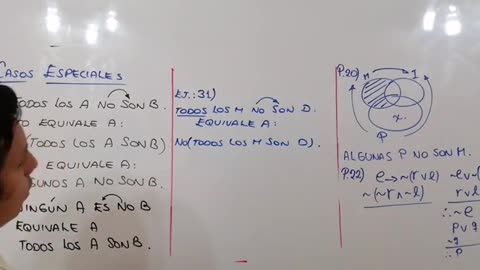 CASOS ESPECIALES
TODOS LOS A NO SON B.
EQUIVALE A:
(TODOS LOS A SON B)
EQUIVALE A:
GUNOS A NO SON B.
NINGÚN A ES NO B
EQUIVALE A
TODOS LOS A SON B.
EJ.: 31)
TODOS LOS M NO SON D.
EQUIVALE A:
NO(TODOS LOS M SON D).
P.20) M I
x.
P
ALGUNAS P NO SON M.
P.22) e→~(r∨l)
~(~r∧~l)
r∨l
∴~e
P∨q
~q
∴P